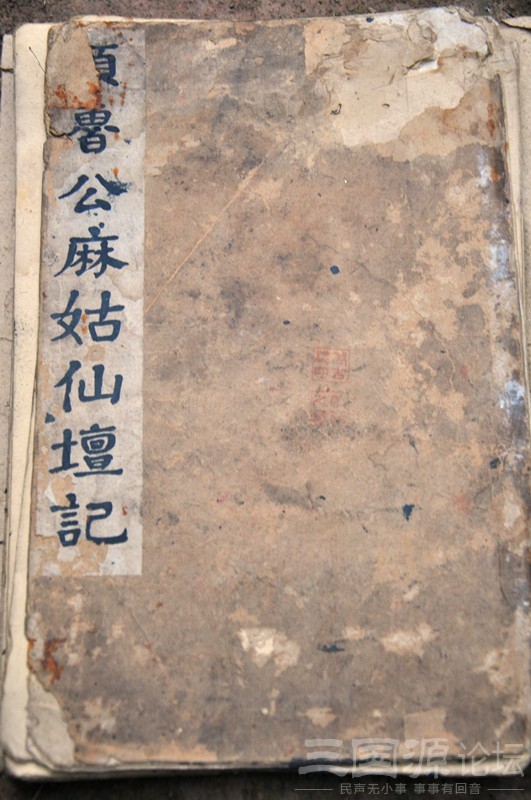 顏魯公麻姑仙壇記
三国源论坛
民声无小事 事事有回音